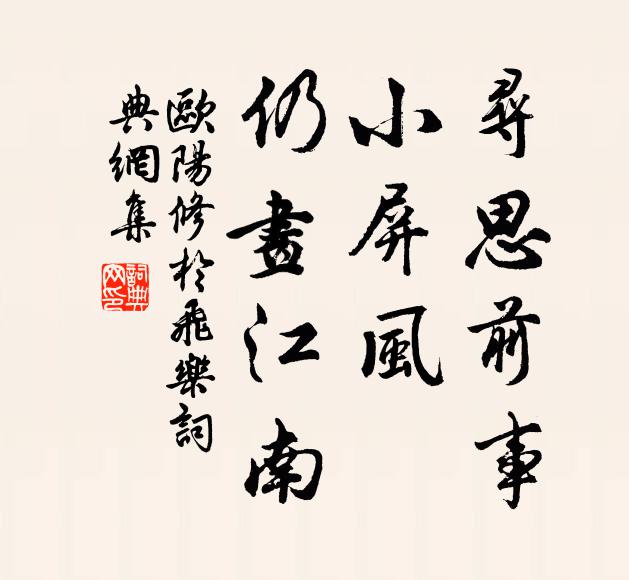 尋思前事
小屏風
仍畫江南
歐陽修於飛樂詞
典網集
詞典网印